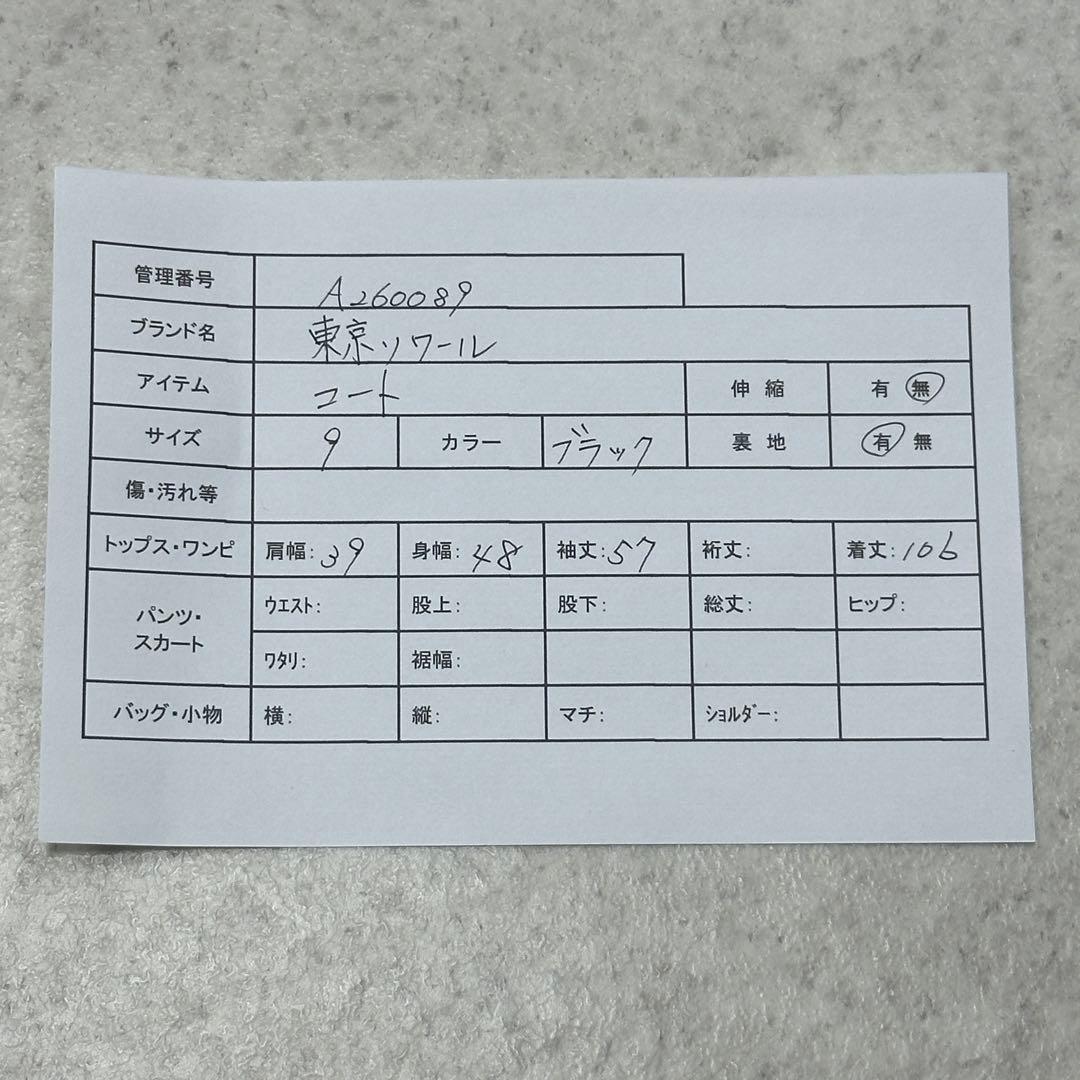 管理番号 A260089
ブランド名 東京ソワール
アイテム コート 伸縮 有 無
サイズ 9 カラー ブラック 裏地 有 無
傷・汚れ等
トップス・ワンピ 肩幅:39 身幅:48 袖丈:57 裄丈: 着丈:106
パンツ・スカート ウエスト: 股上: 股下: 総丈: ヒップ:
ワタリ: 裾幅:
バッグ・小物 横: 縦: マチ: ショルダー: